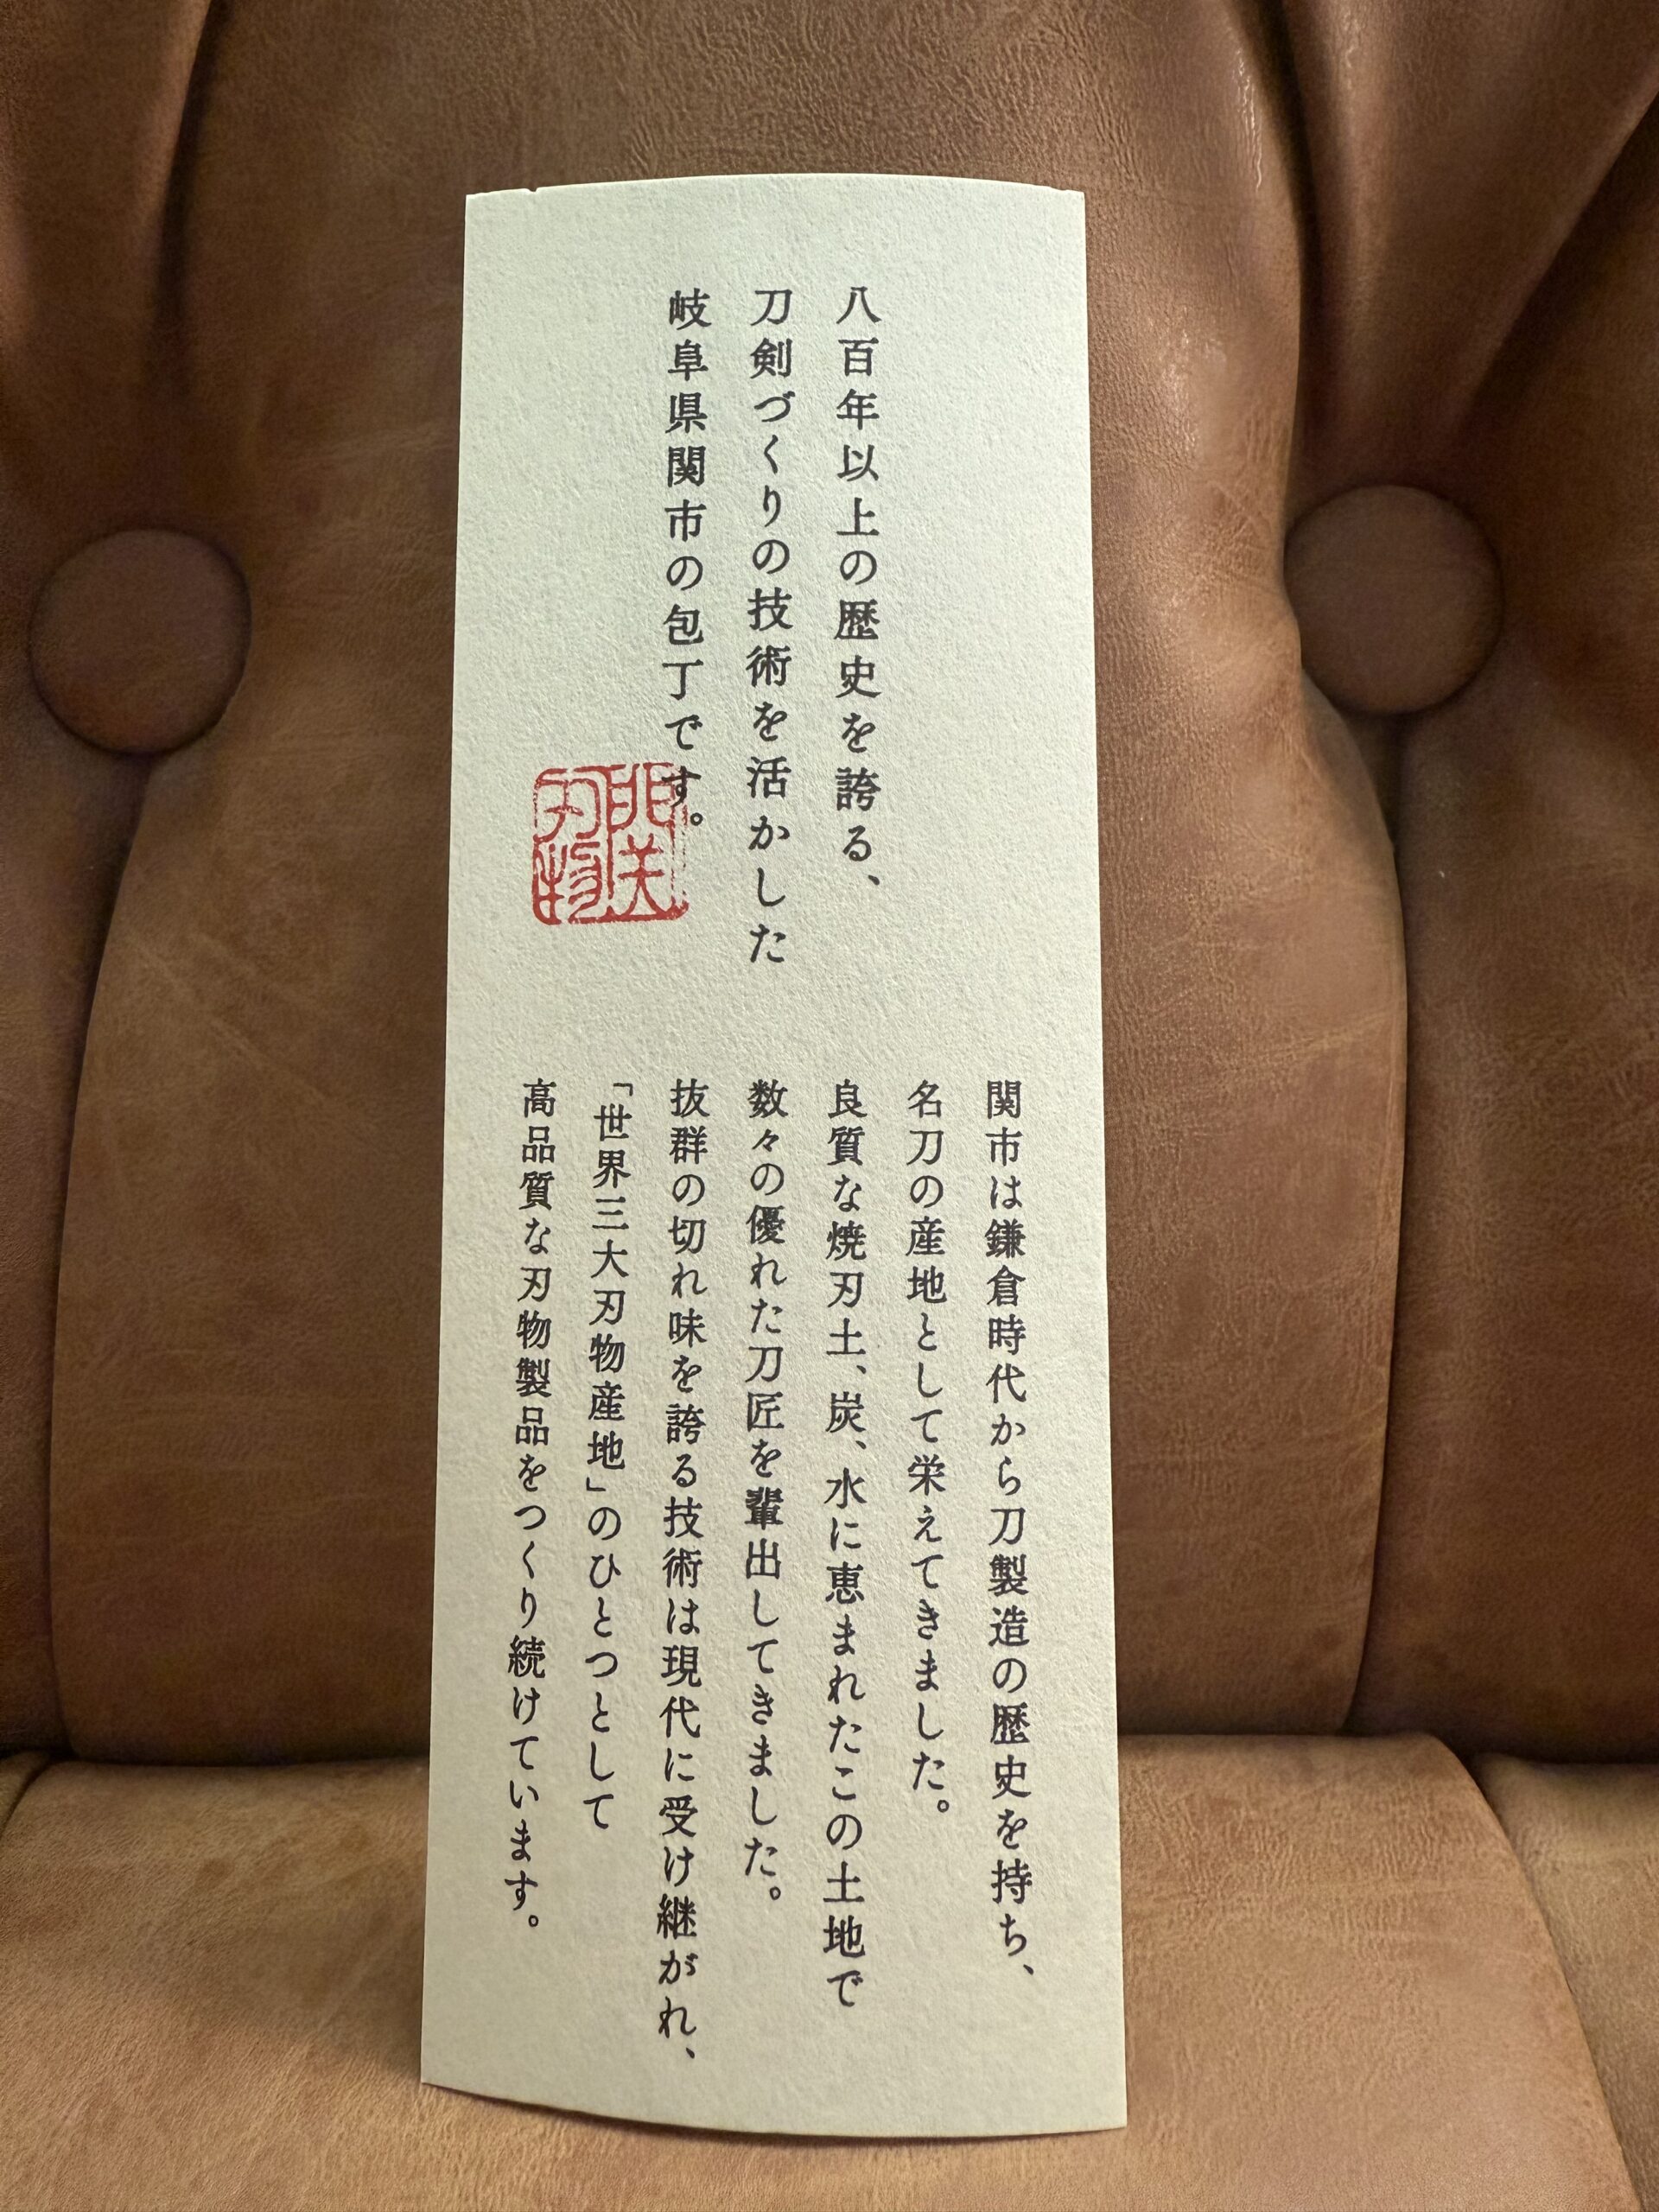 八百年以上の歴史を誇る、
刀剣づくりの技術を活かした
岐阜県関市の包丁です。
関
刃物
関市は鎌倉時代から刀製造の歴史を持ち、
名刀の産地として栄えてきました。
良質な焼刃土、炭、水に恵まれたこの土地で
数々の優れた刀匠を輩出してきました。
抜群の切れ味を誇る技術は現代に受け継がれ、
「世界三大刃物産地」のひとつとして
高品質な刃物製品をつくり続けています。